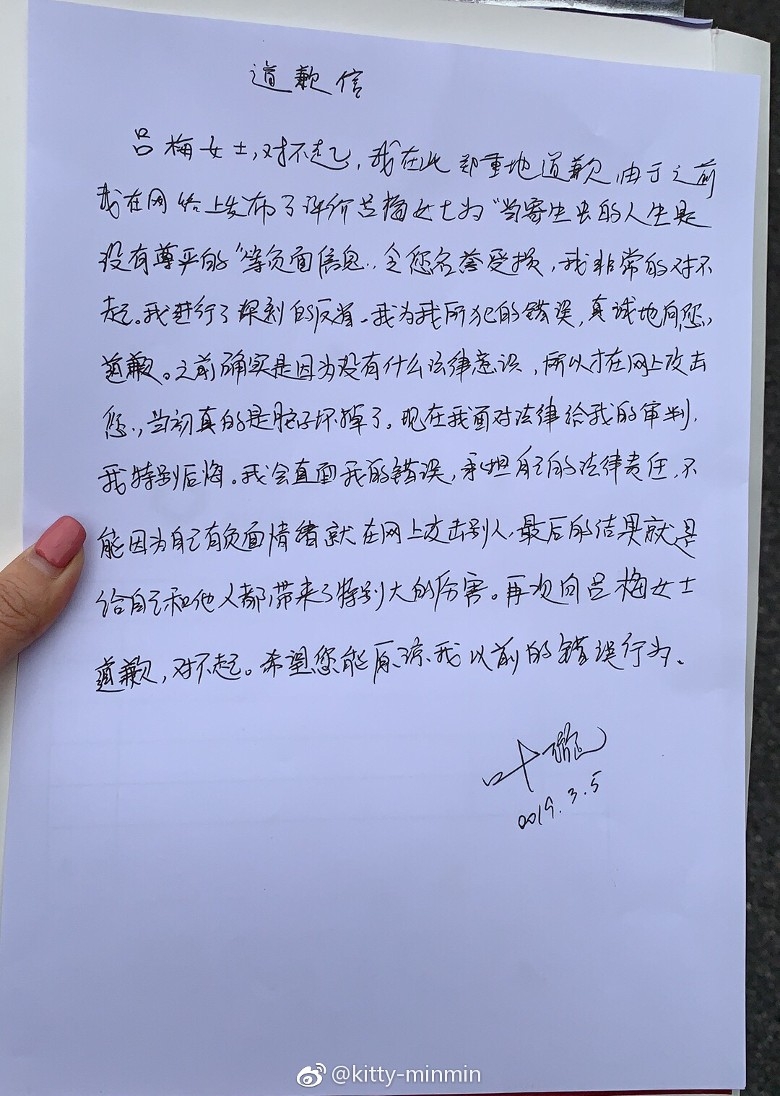 道歉信
吕梅女士，对不起，我在此郑重地道歉，由于之前
我在网络上发布了评价吕梅女士为“当寄生虫的人生是
没有尊严的”等负面信息，令您名誉受损，我非常的对不
起。我进行了深刻的反省。我为我所犯的错误，真诚地向您，
道歉。之前确实是因为没有什么法律意识，所以才在网上攻击
您，当初真的是脑子坏掉了。现在我面对法律给我的审判，
我特别后悔。我会直面我的错误，承担自己的法律责任，不
能因为自己有负面情绪就在网上攻击别人，最后的结果就是
给自己和他人都带来了特别大的伤害。再次向吕梅女士
道歉，对不起。希望您能原谅我以前的错误行为。
叶璇
2019.3.5
@kitty-minmin